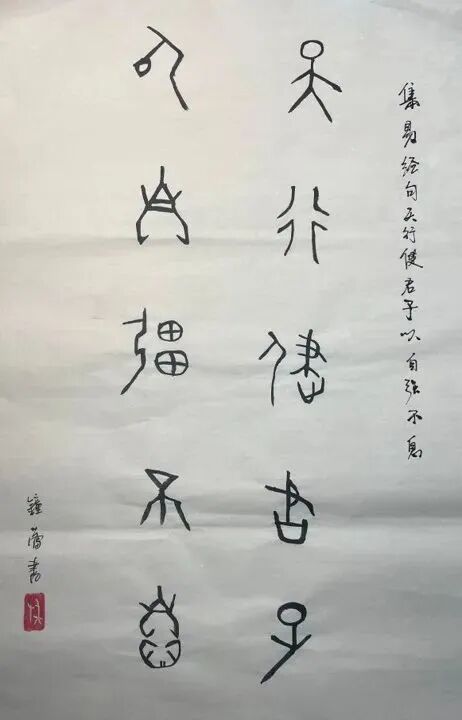 集易经句天行健君子以自强不息
天行健君子
以自彊不息
书